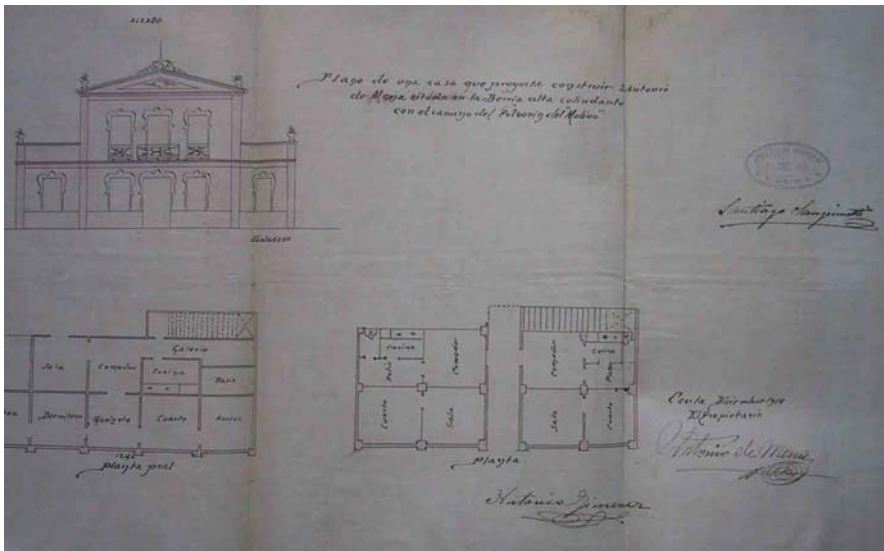 ALZADO
Plano de una casa que proyecta construir D. Antonio
de Mena situada en la Berria alta colindante
con el camino del Polvorin del Molino"
Santiago Sanguinetti
Galeria
Sala
Comedor
Cocina
Patio
Dormitorio
Gavinete
Cuarto
Aseo
Planta pral
Cocina
Patio
Comedor
Cuarto
Sala
Comedor
Cocina
Patio
Sala
Cuarto
Planta
Ceuta Diciembre
El Propietario
Antonio de Mena
Antonio Gimenez